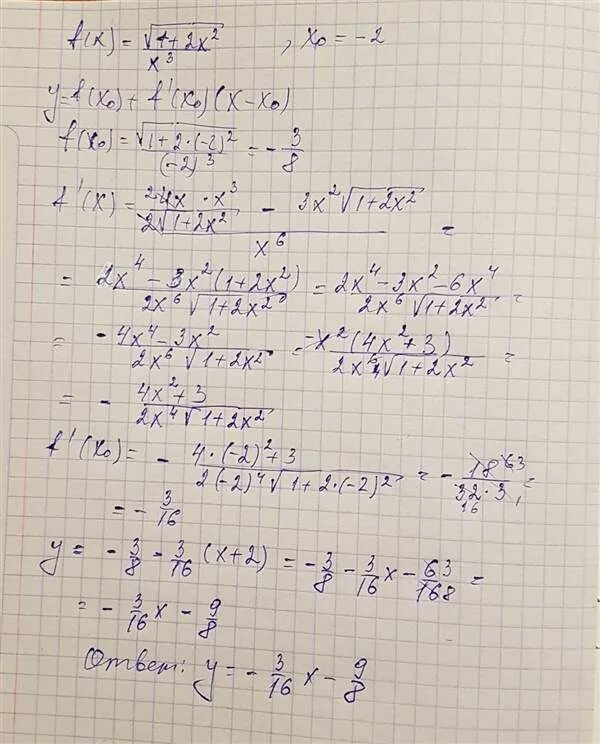 f(x) = √(1+2x²) / x³ , x₀ = -2
y = f(x₀) + f'(x₀)(x-x₀)
f(x₀) = √(1+2·(-2)²) / (-2)³ = -3/8
f'(x) = (4x·x³ / 2√(1+2x²) - 3x²√(1+2x²)) / x⁶ =
= (2x⁴ - 3x²(1+2x²)) / (2x⁶√(1+2x²)) = (2x⁴-3x²-6x⁴) / (2x⁶√(1+2x²)) =
= (-4x⁴-3x²) / (2x⁶√(1+2x²)) = -x²(4x²+3) / (2x⁶√(1+2x²)) =
= - (4x²+3) / (2x⁴√(1+2x²))
f'(x₀) = - (4·(-2)²+3) / (2(-2)⁴√(1+2·(-2)²)) = - 18 63 / (32·3) =
= - 3/16
y = -3/8 - 3/16 (x+2) = -3/8 - 3/16 x - 63/168 =
= - 3/16 x - 9/8
Ответ: y = - 3/16 x - 9/8